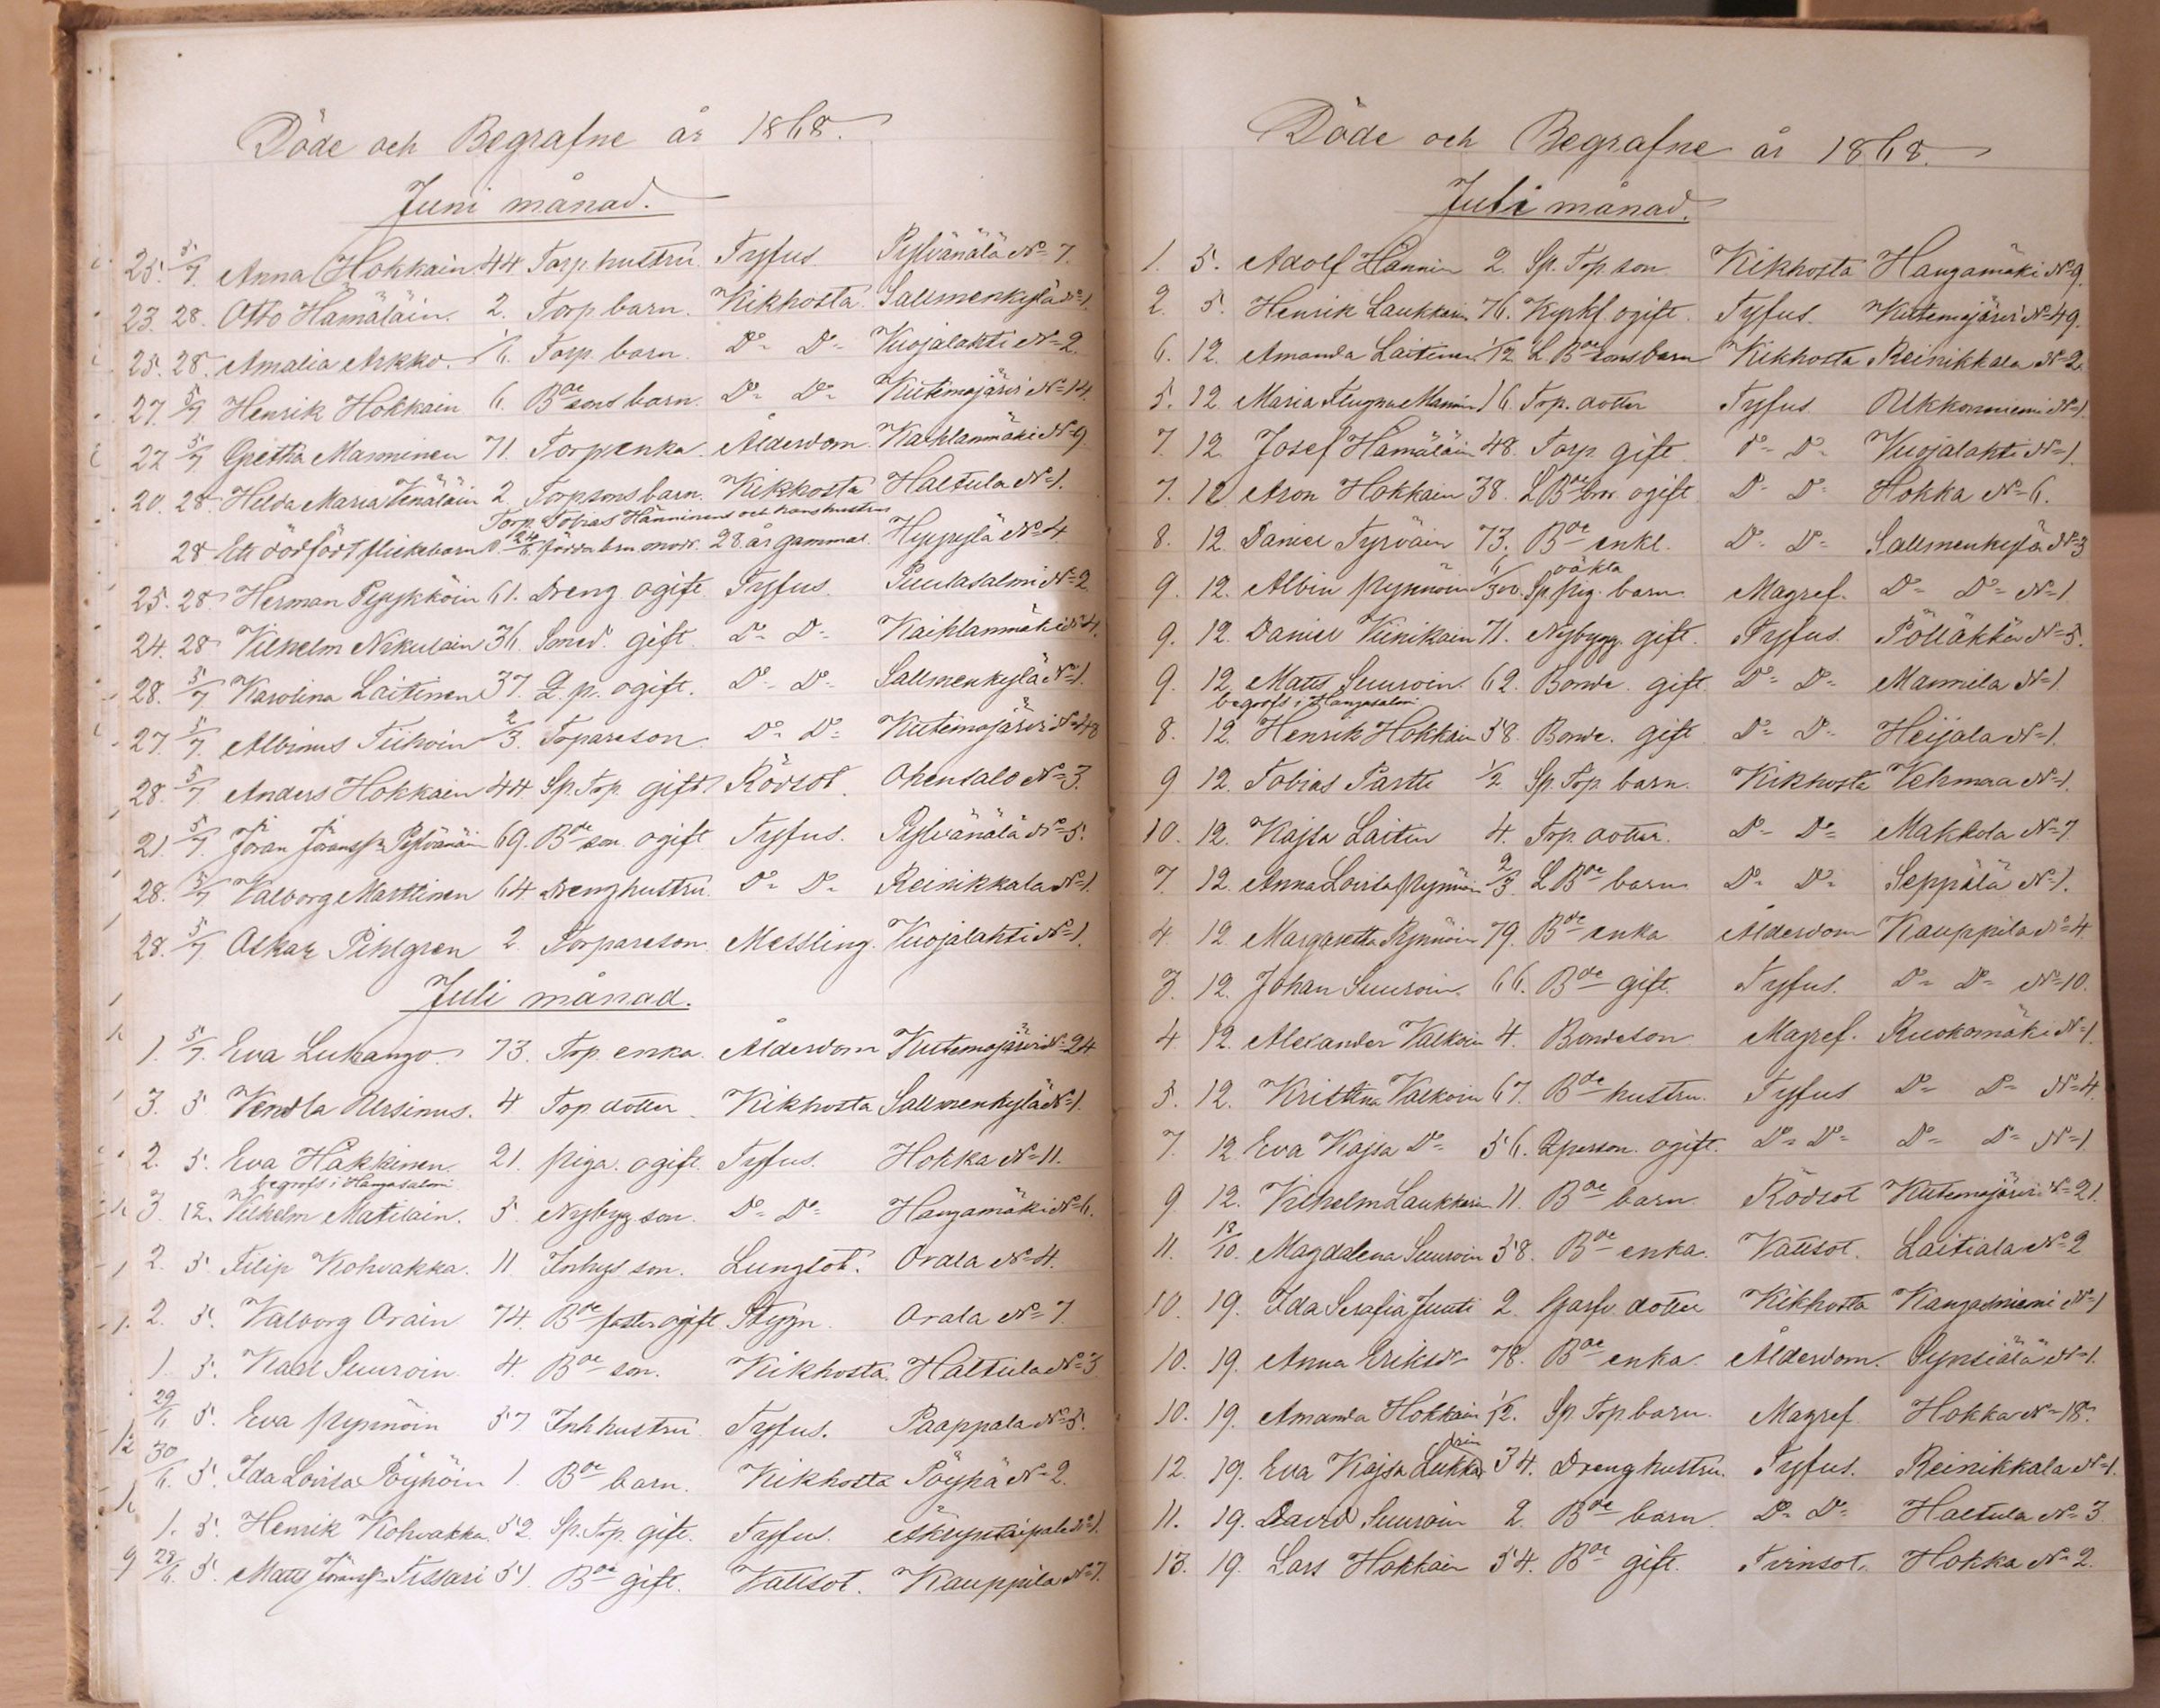 Döde och Begrafne år 1868.
Juni månad.
25. 5/7 Anna Hokkain 44 Torp. hustru. Tyfus Pylvänälä No 7.
23. 28. Otto Hämäläin. 2. Torp barn. Kikhosta Salmenkylä No 1.
25. 28. Amalia Arkko. 1/6. Torp. barn. Do Do Kuojalahti No 2.
27. 5/7 Henrik Hokkain 6. Bde sons barn. Do Do Kutemajärvi No 14.
22 5/7 Gretha Manninen 71. Torp enka. Ålderdom. Kaihlanmäki No 9.
20. 28. Hilda Maria Venäläin 2 Torpsons barn. Kikhosta Haltula No 1.
Torp. Tobias Hänninens och hans hustru
28 Ett dödfödt flickebarn 24/6 födde barn mod. 28 år gammal. Hyppylä No 4
25. 28. Herman Pylykköin 61. Dreng ogift. Tyfus. Puulasalmi No 2
24. 28 Vilhelm Nikulain 36. Smed. gift. Do Do Kaihlanmäki No 4.
28. 5/7 Karolina Laitinen 37. I. p. ogift. Do Do Salmenkylä No 1.
27. 5/7. Albinus Tiihoin 2/3. Torpareson. Do Do Kutemajärvi No 48
28. 5/7. Anders Hokkain 44. Sp. Torp. gift. Rödsot. Ohensalo No 3.
21. 5/7. Jöran Göranss. Pylvänäin 69. Bde son. ogift Tyfus. Pylvänälä No 5.
28. 5/7 Valborg Marttinen 64 Drenghustru. Do Do Reinikkala No 1.
28. 5/7 Oskar Pihlgren 2. Torpareson. Messling. Kuojalahti No 1.
Juli månad.
1. 5/7. Eva Lukango. 73. Torp. enka. Ålderdom Kutemajärvi No 24
3. 5 Vendla Ursinus. 4 Top dotter. Kikhosta Salmenkylä No 1.
2. 5. Eva Häkkinen. 21. piga. ogift. Tyfus. Hokka No 11.
begrofs i Hangasalmi
3 12. Vilhelm Matilain. 5. Nybygg. son. Do Do Hangamäki No 6.
2. 5 Filip Kohvakka. 11 Inhys son. Lungsot. Orala No 4.
2. 5. Valborg Orain 74. Bde faster ogift Stygn. Orala No 7.
1 5. Karl Suuroin 4. Bde son. Kikhosta. Haltula No 3
29/6 5. Eva Nynnöin 57 Inh hustru Tyfus. Paappala No 5.
30/6. 5. Ida Lovisa Pöyhöin 1. Bde barn. Kikhosta Pöyhä No 2.
1. 5. Henrik Kohvakka. 52. Sp. Top. gift. Tyfus. Äkryntaipale No 1.
28/6. 5. Matts Göranss. Tissari 51. Bde gift. Vattsot. Kauppila No 7.
Döde och Begrafne år 1868.
Juli månad.
1. 5. Adolf Hännin 2. Sp. Top. son Kikhosta Hangamäki No 9.
2. 5. Henrik Laukkain 76. Kyrkf. ogift. Tyfus. Kutemajärvi No 49.
6. 12. Amanda Laitinen 1/2 L. Bde sons barn Kikhosta Reinikkala No 2.
5. 12 Maria Manin 16. Top. dotter Tyfus. Ukkonniemi No 1.
7. 12. Josef Hämäläin 48. Torp. gift. Do Do Kuojalahti No 1.
7. 12 Aron Hokkain 38. L Bde bror. ogift Do Do Hokka No 6.
8. 12. Daniel Tyrväin 73. Bde enkl. Do Do Salmenkylä No 3
9. 12. Albin Pynnöin 6/300. Sp. pig. oäkta barn. Magref. Do Do No 1.
9. 12. Daniel Viinikain 71. Nybygg. gift. Tyfus. Pölläkkä No 5.
9. 12. Matts Suuroin. 62. Bonde. gift. Do Do Mannila No 1.
begrofs i Hangasalmi
8. 12. Henrik Hokkain 58. Bonde. gift Do Do Heijala No 1.
9 12. Tobias Partti 1/2 Sp. Top. barn. Kikhosta Vehmaa No 1.
10. 12. Kajsa Laitin 4. Top. dotter. Do Do Makkola No 7.
7. 12. Anna Lovisa Pynnöin 2/3. L. Bde barn Do Do Seppälä No 1.
4 12. Margaretha Pynnöin 79. Bde enka Ålderdom Kauppila No 4.
3. 12. Johan Suuroin. 66. Bde gift. Tyfus. Do Do No 10.
4 12. Alexander Valkoin 4. Bondeson Magref. Ruokomäki No 1.
5. 12. Kristina Valkoin 67. Bde hustru. Tyfus Do Do No 4.
7. 12. Eva Kajsa Do 56. I person. ogift. Do Do Do Do No 1.
9 12. Vilhelm Laukkain 11. Bde barn. Rödsot Kutemajärvi No 21.
11. 18/10. Magdalena Suuroin 58. Bde enka. Vattsot. Laitiala No 2
10. 19. Ida Serafia Juuti 2. Garfv. dotter Kikhosta Kangasniemi No 1
10. 19. Anna Eriksdr 78. Bde enka. Ålderdom. Synsiälä No 1.
10. 19. Amanda Hokkain 1/2. Sp. Top barn. Magref. Hokka No 18.
12. 19. Eva Kajsa Lukkarin 34. Dreng hustru. Tyfus. Reinikkala No 1.
11. 19. David Suuroin 2. Bde barn. Do Do Haltula No 3.
13. 19. Lars Hokkain 54. Bde gift. Tvinsot. Hokka No 2.